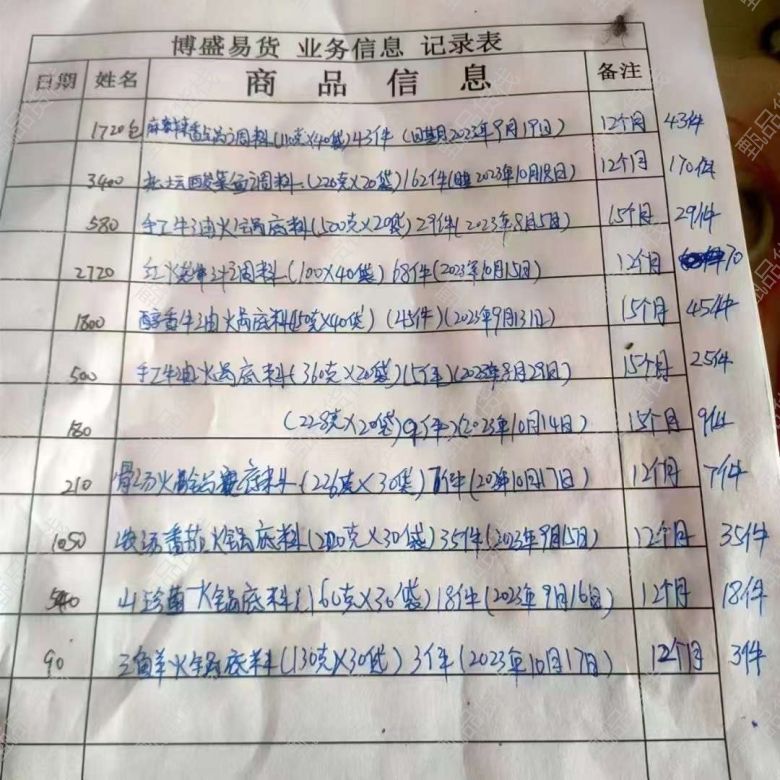 博盛易货 业务信息 记录表
日期 姓名 商品信息 备注
1720包 麻辣香锅调料(110克×40袋)43件(日期2023年9月19日) 12个月 43件
3400 调料(220克×20袋)162件(2023年10月18日) 12个月 170件
580 手工牛油火锅底料(500克×20袋)29件(2023年8月5日) 15个月 29件
2720 调料(100×40袋)68件(2023年10月15日) 12个月 70
1800 醇香牛油火锅底料(450克×40袋)(45件)(2023年9月13日) 15个月 45件
500 手工牛油火锅底料(360克×20袋)(2023年8月29日) 15个月 25件
180 (228克×20袋)9件(2023年10月14日) 15个月 9件
210 骨汤火锅底料(226克×30袋)7件(2023年10月17日) 12个月 7件
1050 番茄火锅底料(200克×30袋)35件(2023年9月15日) 12个月 35件
540 山珍菌火锅底料(160克×30袋)18件(2023年9月16日) 12个月 18件
90 羊火锅底料(130克×30袋)3件(2023年10月17日) 12个月 3件